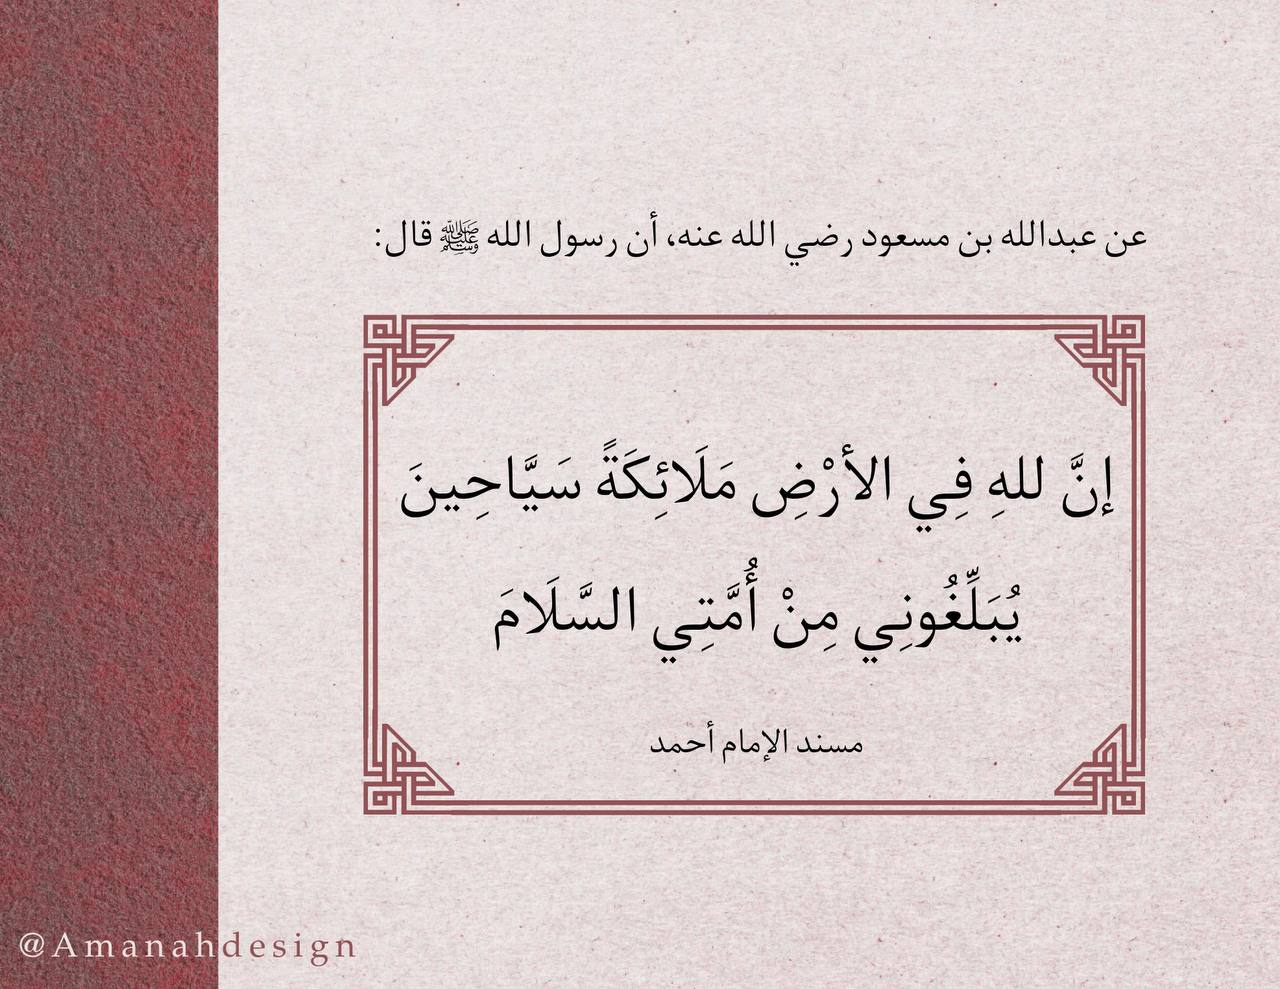 عن عبدالله بن مسعود رضي الله عنه، أن رسول الله ﷺ قال:
إنَّ للهِ فِي الأرْضِ مَلَائِكَةً سَيَّاحِينَ
يُبَلِّغُونِي مِنْ أُمَّتِي السَّلَامَ
مسند الإمام أحمد
@Amanahdesign